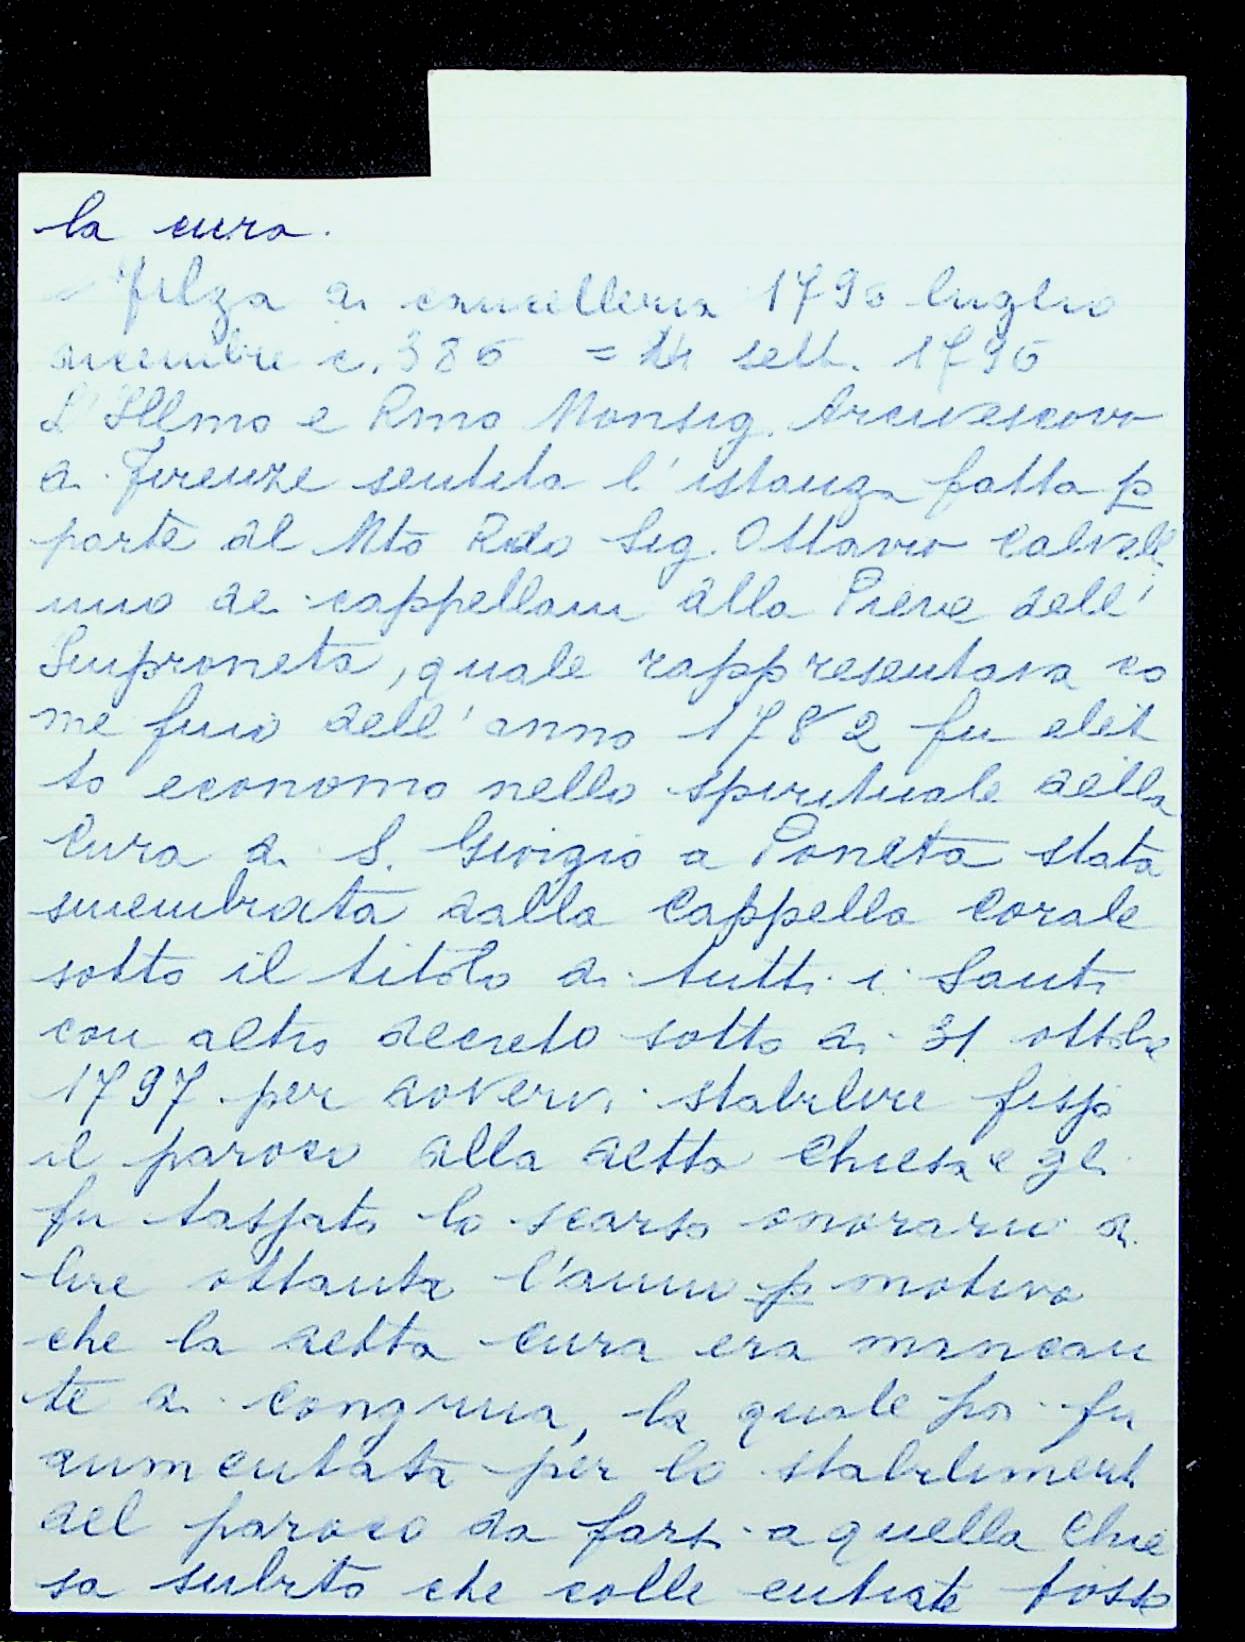 la cura.
Filza di cancelleria 1796 luglio
dicembre c. 386 = 24 sett. 1796
L'Illmo e Rmo Monsig. Arcivescovo
di Firenze sentita l'istanza fatta p
parte del Mto Rdo Sig. Ottavio Calvelli
uno dei cappellani della Pieve dell'
Impruneta, quale rappresentava co
me fino dell'anno 1782 fu elet
to economo nello spirituale della
Cura di S. Giorgio a Poneta stata
smembrata dalla Cappella Corale
sotto il titolo di tutti i Santi
con altro decreto sotto di 31 ottobre
1797 per dovervi stabilire fisso
il paroco alla detta Chiesa e gli
fu tassato lo scarso onorario di
lire ottanta l'anno p motivo
che la detta cura era mancan
te di congrua, la quale poi fu
aumentata per lo stabiliment
del paroco da farsi a quella Chie
sa subito che colle entrate fosse